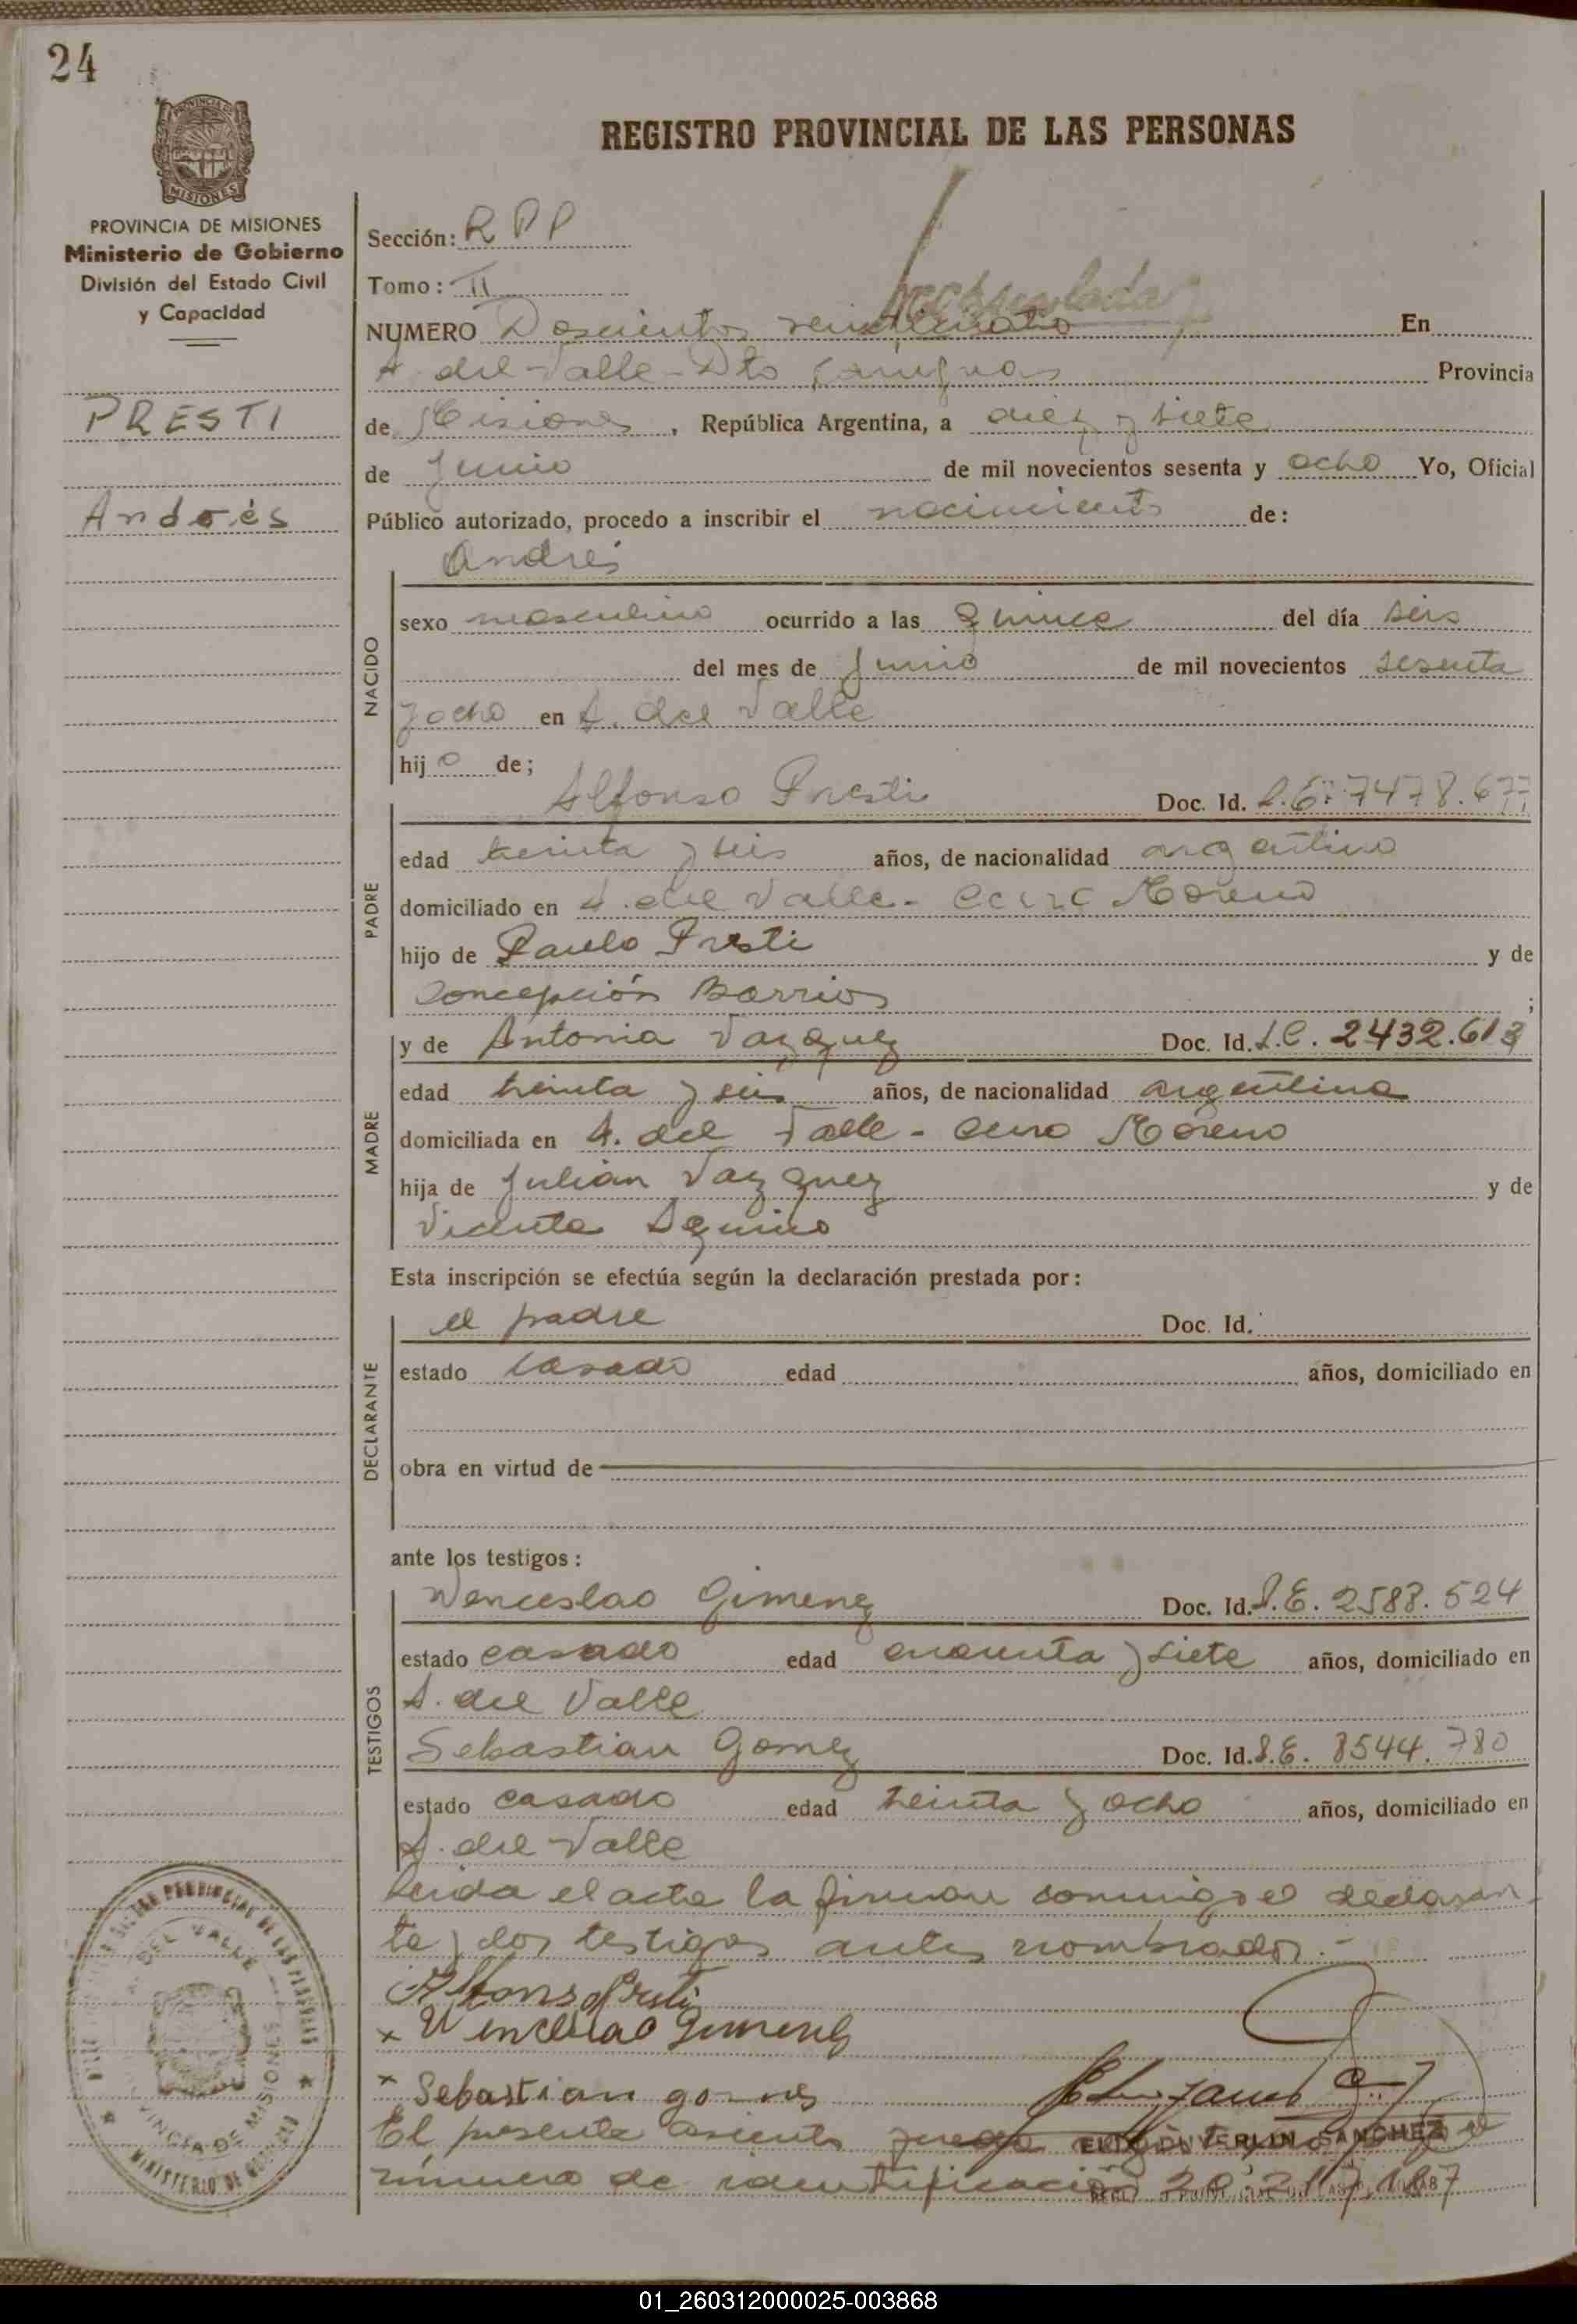 24
REGISTRO PROVINCIAL DE LAS PERSONAS
PROVINCIA DE MISIONES
Ministerio de Gobierno
División del Estado Civil
y Capacidad
PRESTI
Andrés
Sección: R P P
Tomo: II
NUMERO Doscientos veinticuatro En
A. del Valle - Dto Cainguas Provincia
de Misiones, República Argentina, a diez y siete
de Junio de mil novecientos sesenta y ocho Yo, Oficial
Público autorizado, procedo a inscribir el nacimiento de:
Andrés
NACIDO
sexo masculino ocurrido a las quince del día seis
del mes de Junio de mil novecientos sesenta
y ocho en A. del Valle
hijo de;
PADRE
Alfonso Presti Doc. Id. L.E. 7478.677
edad treinta y seis años, de nacionalidad argentino
domiciliado en A. del Valle - Cerro Moreno
hijo de Paulo Presti y de
Concepción Barrios;
MADRE
y de Antonia Vazquez Doc. Id. L.C. 2432.613
edad treinta y seis años, de nacionalidad argentina
domiciliada en A. del Valle - Cerro Moreno
hija de Julian Vazquez y de
Vicenta Aquino
Esta inscripción se efectúa según la declaración prestada por:
DECLARANTE
el padre Doc. Id.
estado casado edad años, domiciliado en
obra en virtud de
ante los testigos:
TESTIGOS
Wenceslao Gimenez Doc. Id. L.E. 2583.524
estado casado edad cincuenta y siete años, domiciliado en
A. del Valle
Sebastian Gomez Doc. Id. L.E. 8544.780
estado casado edad treinta y ocho años, domiciliado en
A. del Valle
Leida el acta la firman conmigo el declaran-
te y los testigos antes nombrados.-
Alfonso Presti
x Wenceslao Gimenez
x Sebastian gomes
El presente asiento
ELIO DUVERLIN SANCHEZ
número de identificación 20.217.187
DEL VALLE
PROVINCIA DE MISIONES
MINISTERIO DE GOBIERNO
01_260312000025-003868